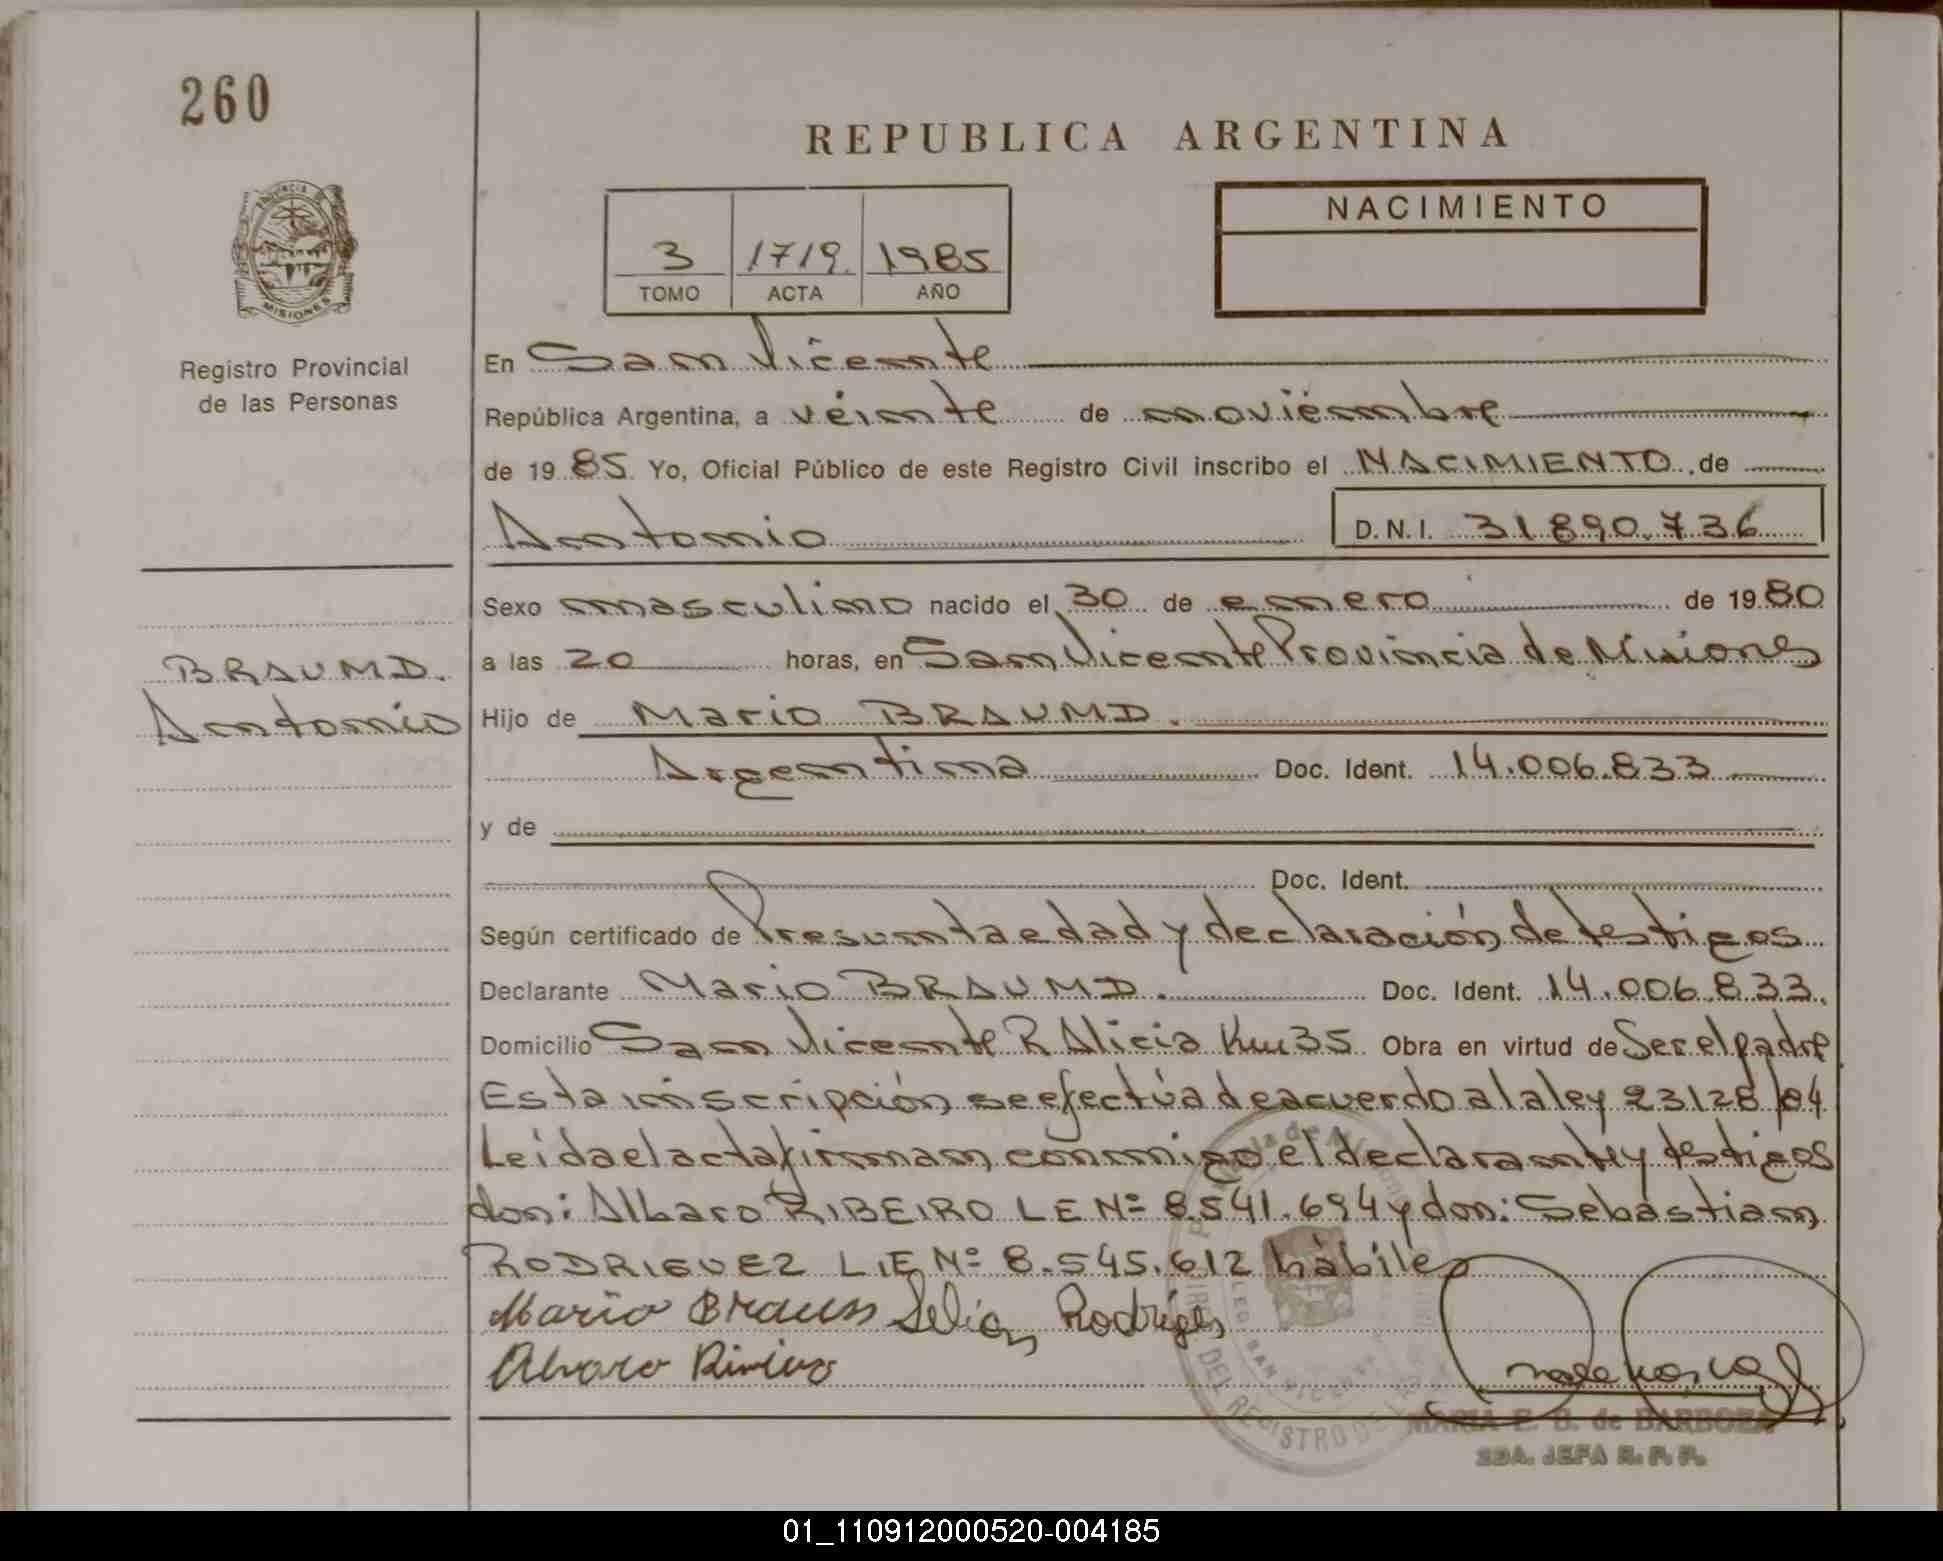 260
REPUBLICA ARGENTINA
PROVINCIA DE
MISIONES
Registro Provincial
de las Personas
3 1719 1985
TOMO ACTA AÑO
NACIMIENTO
En San Vicente
República Argentina, a veinte de noviembre
de 19 85 Yo, Oficial Público de este Registro Civil inscribo el NACIMIENTO, de
Antonio D. N. I. 31.890.736
Sexo masculino nacido el 30 de enero de 19 80
a las 20 horas, en San Vicente Provincia de Misiones
BRAUND.
Antonio
Hijo de Mario BRAUND.
Argentina Doc. Ident. 14.006.833
y de
Doc. Ident.
Según certificado de Presunta edad y declaración de testigos
Declarante Mario BRAUND. Doc. Ident. 14.006.833.
Domicilio San Vicente R Alicia Km 35 Obra en virtud de Ser el padre
Esta inscripción se efectúa de acuerdo a la ley 23128/84
Leida el acta firman conmigo el declarante y testigos
don: Albaro RIBEIRO L E Nº 8.541.694 y don: Sebastian
RODRIGUEZ L.E Nº 8.545.612 hábiles
Mario Braun Rodrigez
Alvaro
REGISTRO DE
MARIA E. B. de BARBOZA
2DA. JEFA R. P. P.
01_110912000520-004185